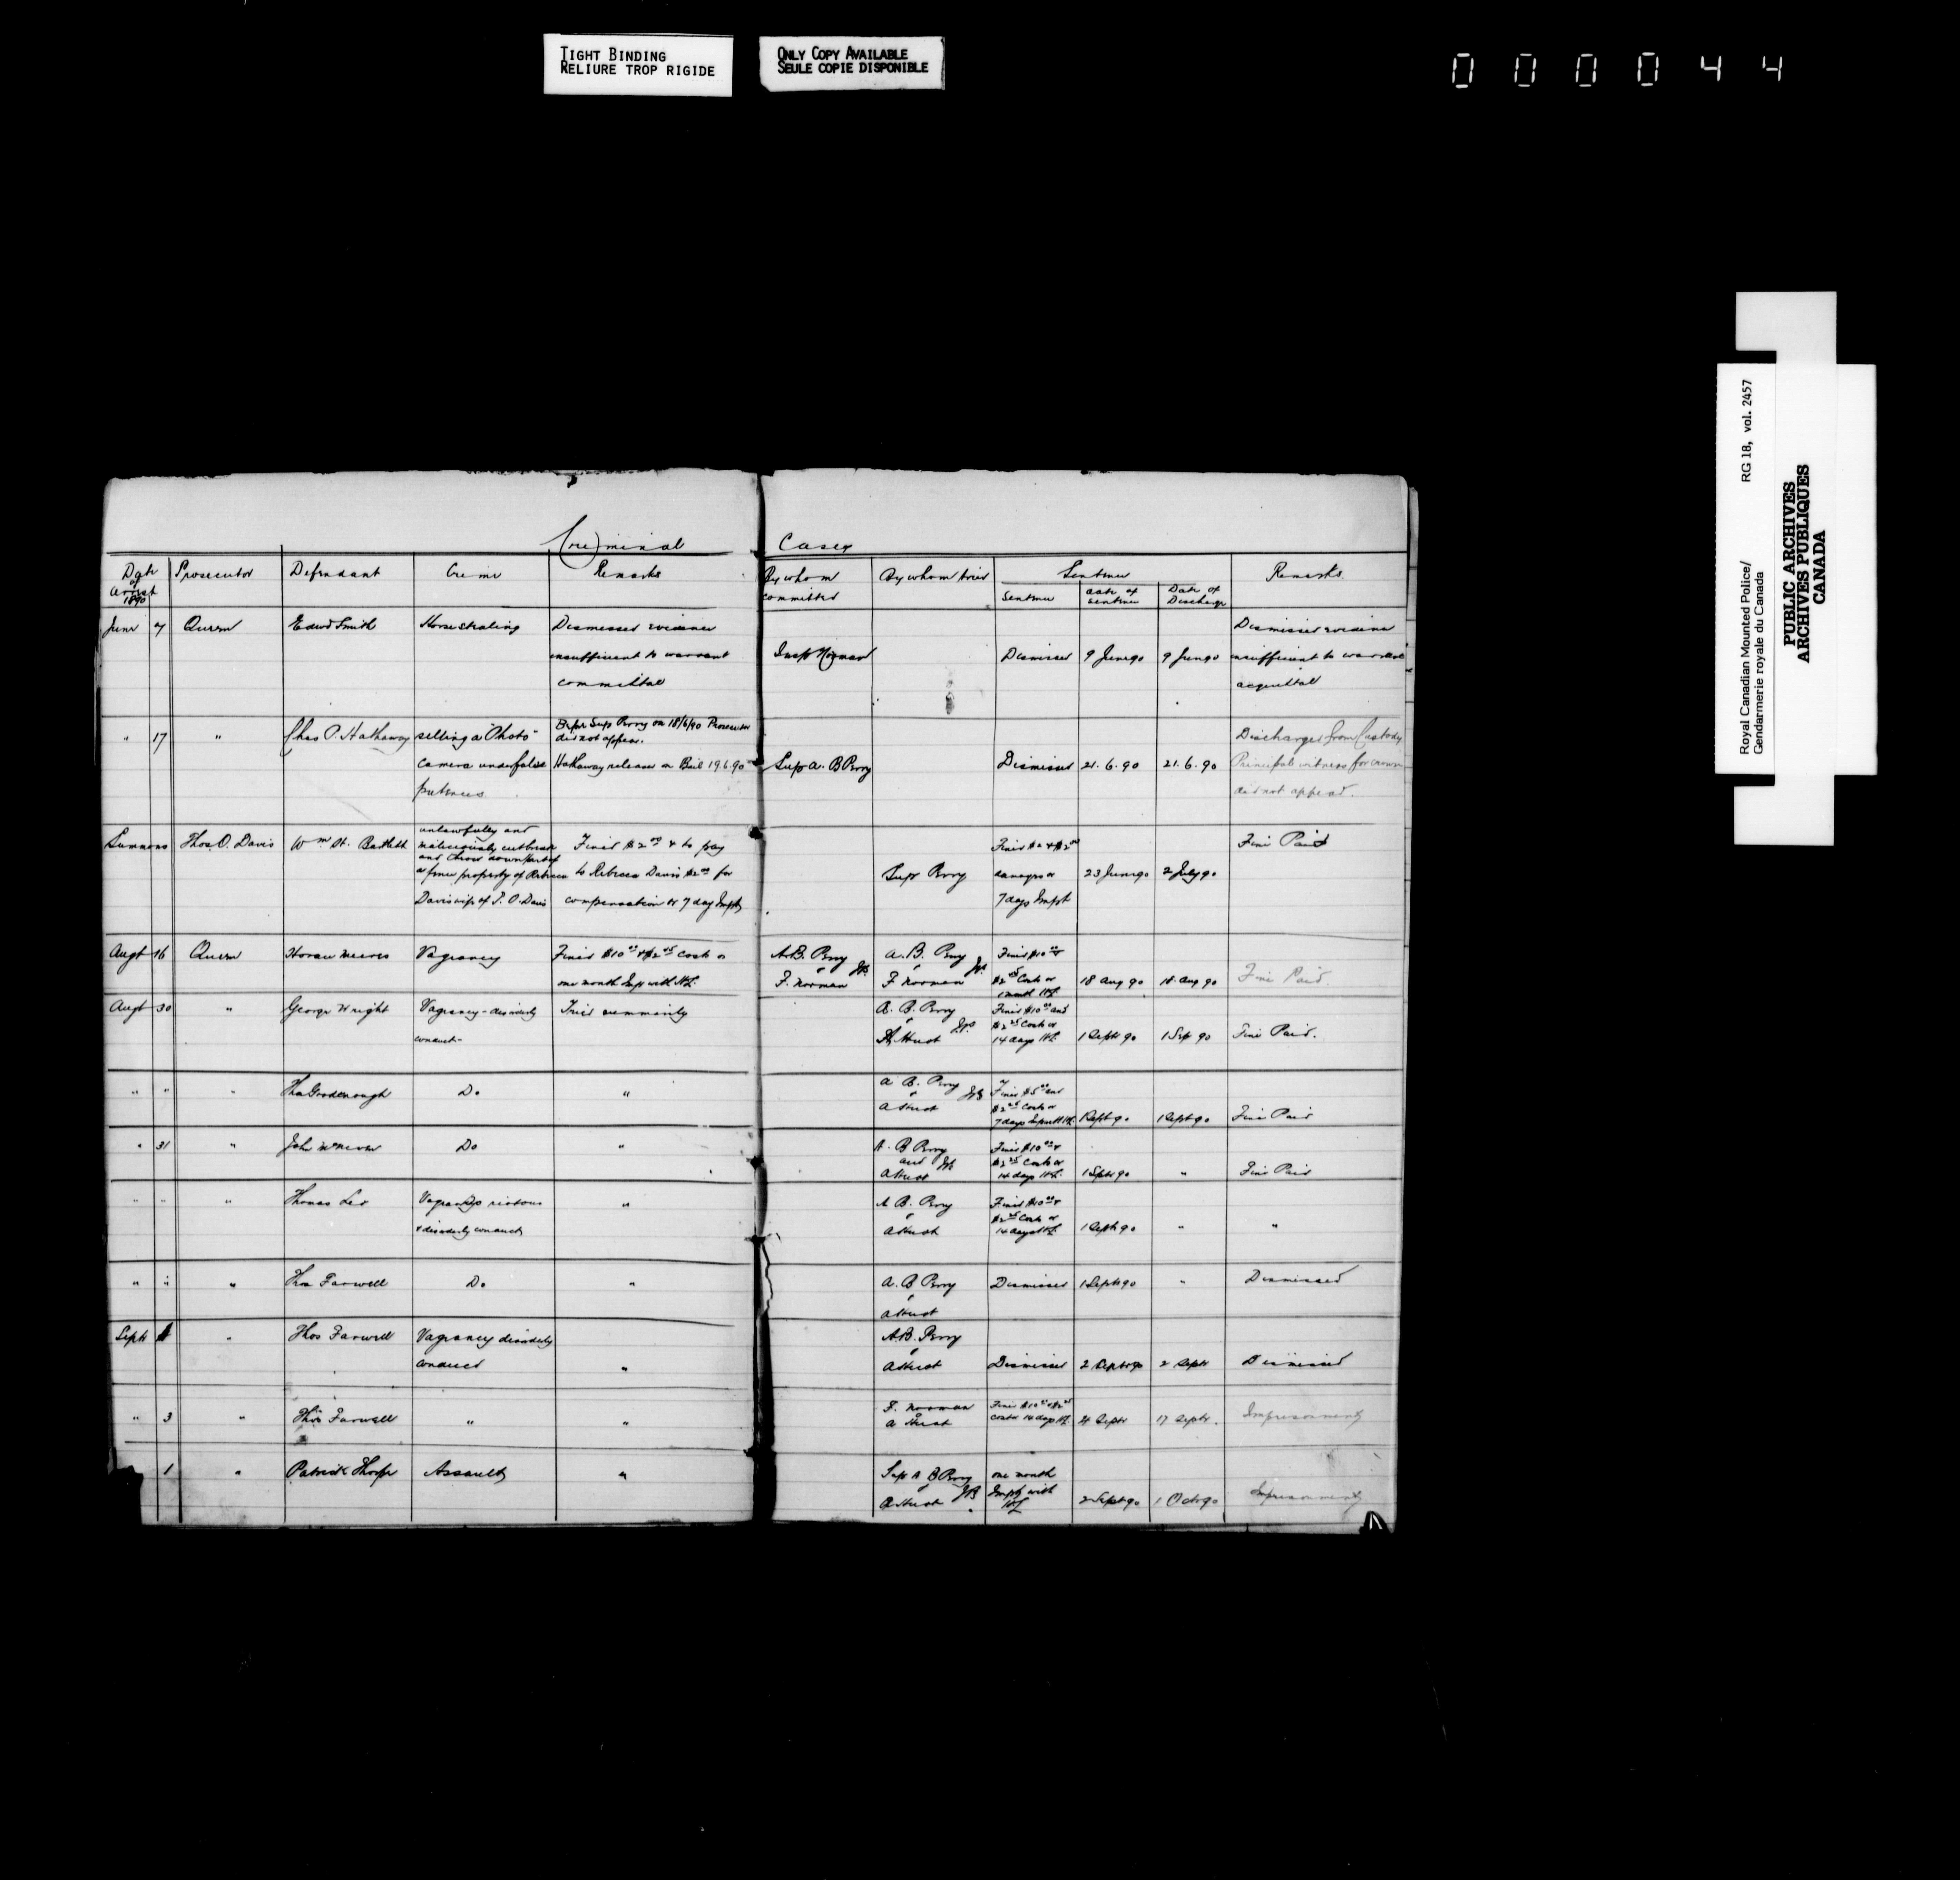 TIGHT BINDING
RELIURE TROP RIGIDE
ONLY COPY AVAILABLE
SEULE COPIE DISPONIBLE
000044
Criminal Cases
Date of arrest 1890 Prosecutor Defendant Crime Remarks By whom committed By whom tried Sentence Remarks
Sentence Date of Sentence Date of Discharge
June 7 Queen Edwd Smith Horse stealing Dismissed evidence Dismissed evidence
insufficient to warrant Insp Norman Dismissed 9 June 90 9 June 90 insufficient to warrant
committal acquittal
" 17 " Chas O. Hathaway selling a "Photo" Before Sup Perry on 18/6/90 Prosecutor did not appear. Discharged from Custody
camera under false Hathaway released on Bail 19.6.90 Sup A. B Perry Dismissed 21.6.90 21.6.90 Principal witness for crown
pretences did not appear.
Summons Thos O. Davis Wm St. Bartlett unlawfully and
maliciously cutbreak Fined $2 00 & to pay Fined $2 & $2 00 Fine Paid
and throw down part of
a fence property of Rebecca to Rebecca Davis $2 00 for Sup Perry damages or 23 June 90 2 July 90
Davis wife of T. O. Davis compensation or 7 day Impt 7 days Impt
Augt 16 Queen Horace Meeres Vagrancy Fined $10 00 & $2 25 Costs or A.B. Perry A. B. Perry Fined $10 00 &
one month Imp with HL. & F. Norman JPs & F Norman JPs $2 25 Costs or 1 month HL 18 Aug 90 18 Aug 90 Fine Paid.
Augt 30 " George Wright Vagrancy - disorderly Tried summarily A. B. Perry Fined $10 00 and
conduct- & A Hust JPs $2 25 Costs or 14 days HL 1 Sept 90 1 Sep 90 Fine Paid.
" " " Thos Goodenough Do " A B. Perry & JPs Fined $5 00 and
A Hust $2 25 Costs or 7 days Imp with HL 1 Sept 90 1 Sept 90 Fine Paid
" 31 " John Do " A. B Perry Fined $10 00 &
and JPs $2 25 Costs or
A Hust 14 days HL. 1 Sept 90 " Fine Paid
" " " Thomas Lee Vagrancy riotous " A B. Perry Fined $10 00 &
& disorderly conduct & A Hust $2 25 Costs or 14 days HL 1 Sept 90 " "
" " " Thos Farwell Do " A. B Perry Dismissed 1 Sept 90 " Dismissed
& A Hust
Sept 1 " Thos Farwell Vagrancy disorderly A.B. Perry
conduct " & A Hust Dismissed 2 Sept 90 2 Sept Dismissed
" 3 " Thos Farwell " " F. Norman Fined $10 00 & $2 25
& A Hust costs 14 days HL 4 Sept 17 Sept. Imprisonment
1 " Patrick Thorpe Assault " Sup A B Perry one month
& A Hust JPs Impt with HL 2 Sept 90 1 Oct 90 Imprisonment
Royal Canadian Mounted Police/ RG 18, vol. 2457
Gendarmerie royale du Canada
PUBLIC ARCHIVES
ARCHIVES PUBLIQUES
CANADA